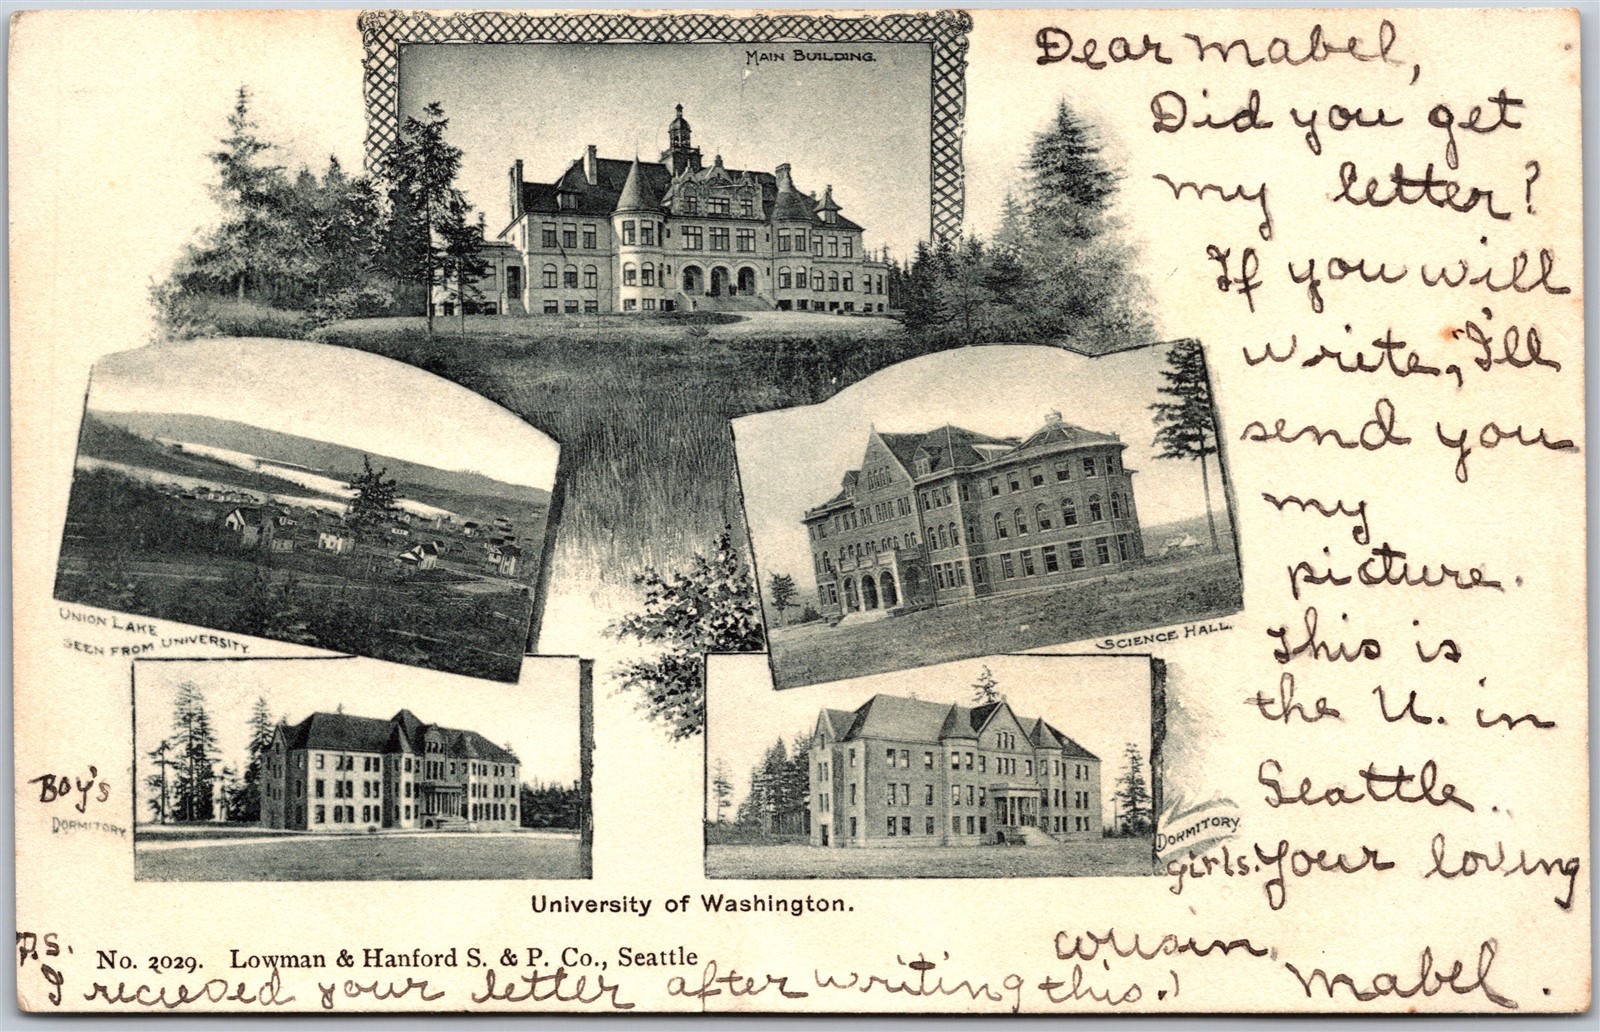 MAIN BUILDING.
Dear Mabel,
Did you get
my letter?
If you will
write, I'll
send you
my
picture.
This is
the U. in
Seattle.
Your loving
cousin,
Mabel.
UNION LAKE
SEEN FROM UNIVERSITY.
SCIENCE HALL.
Boy's
DORMITORY
DORMITORY.
girls.
University of Washington.
P.S.
No. 2029. Lowman & Hanford S. & P. Co., Seattle
I recieved your letter after writing this.)